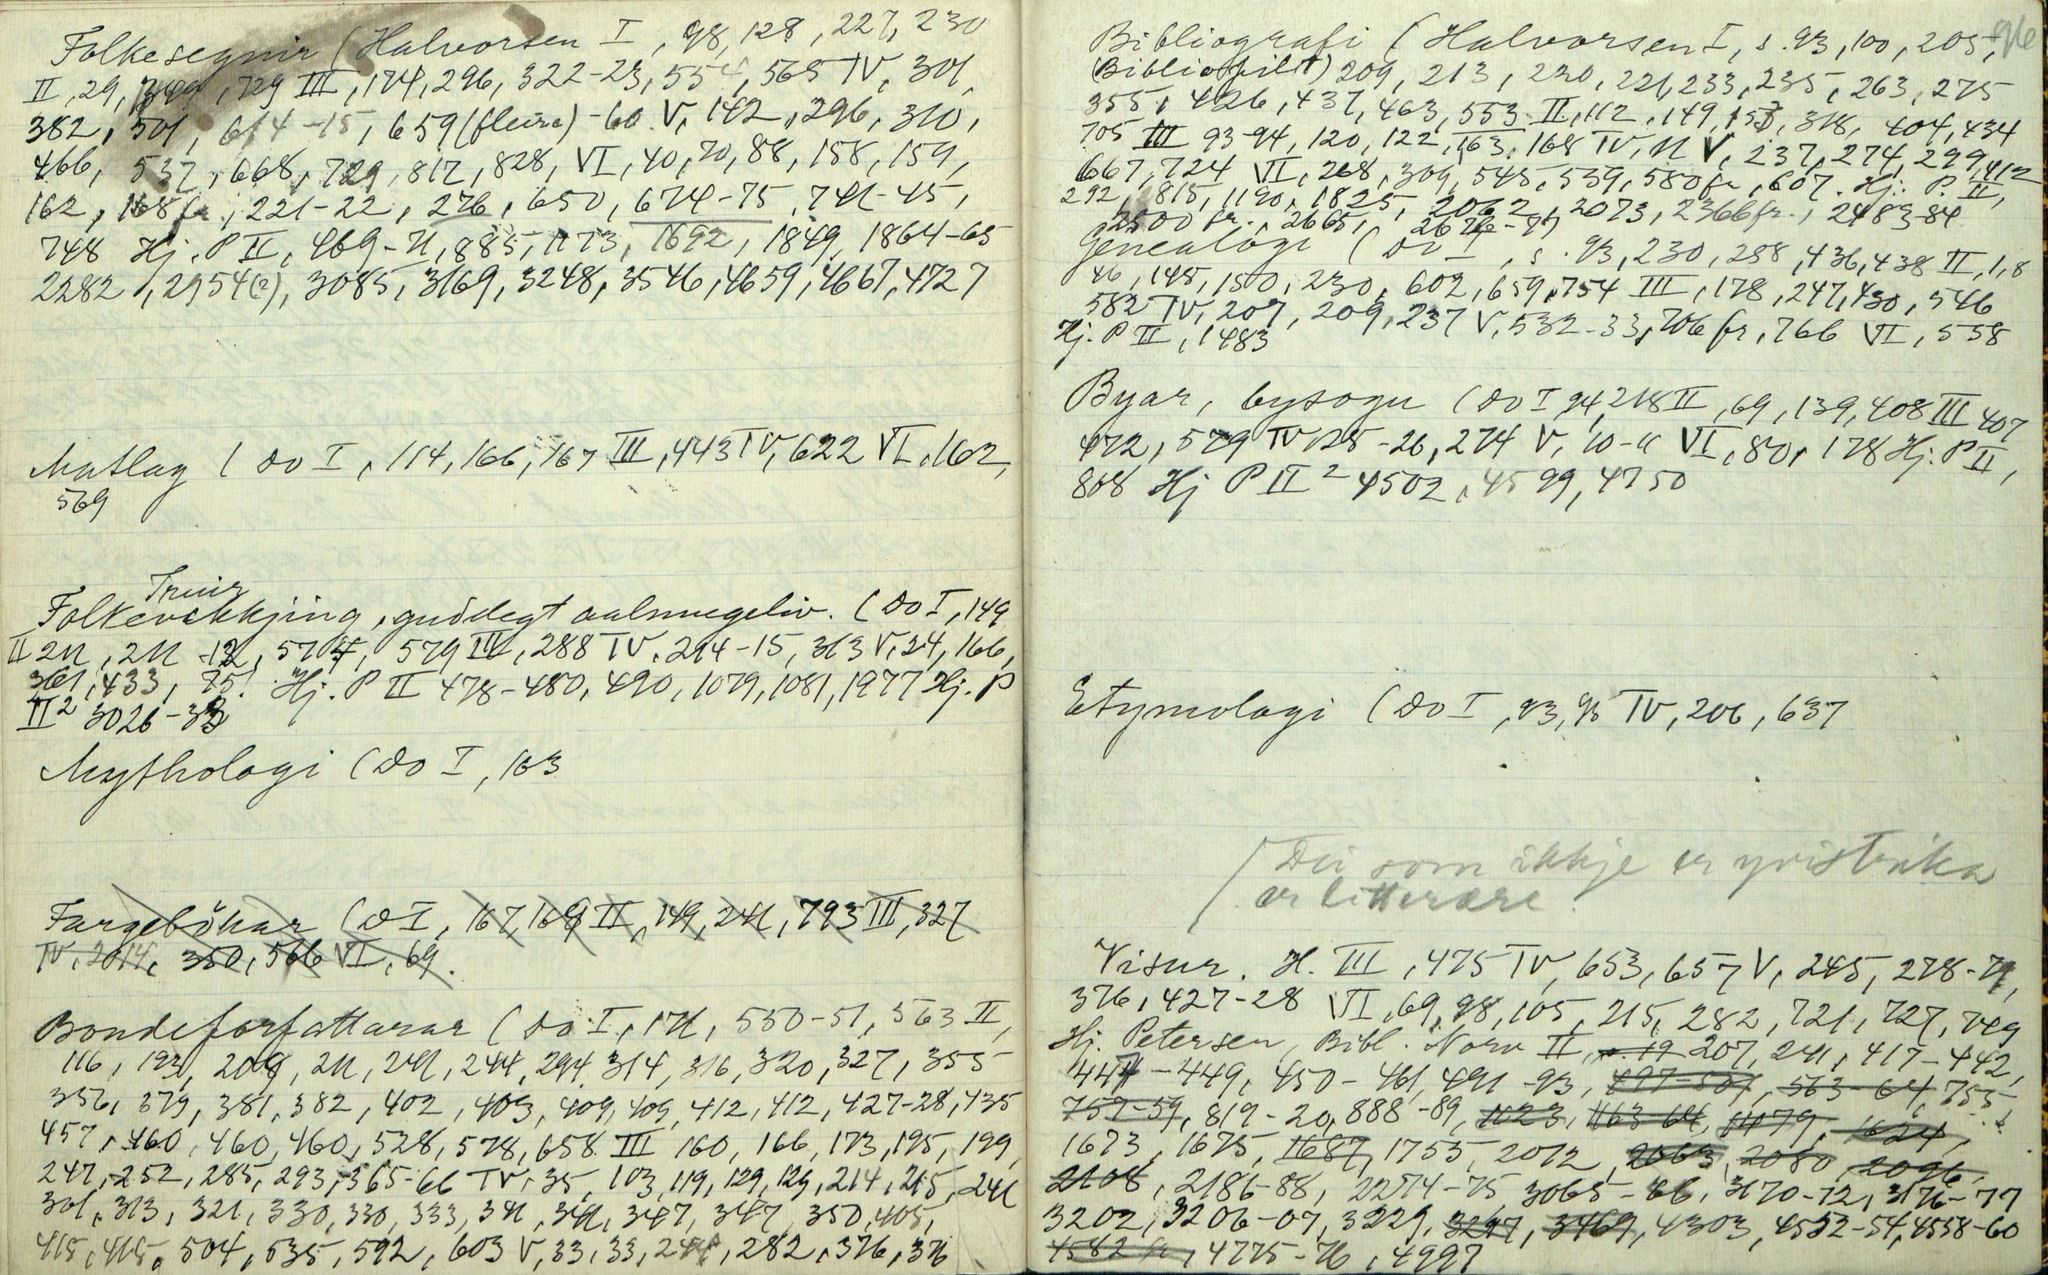 Folkesegnir (Halvorsen I, 98, 128, 227, 230
II, 29, 729 III, 174, 296, 322-23, 554, 565 IV, 301,
382, 501, 614-15, 659 (fleire) -60 V, 142, 296, 310,
466, 537, 668, 729, 817, 828, VI, 40, 70, 88, 158, 159,
162, 168 fr., 221-22, 276, 650, 674-75, 741-45,
748 Hj. P II, 469-71, 885, 1173, 1692, 1849, 1864-65
2282, 2954(2), 3085, 3169, 3248, 3546, 4659, 4667, 4727
Matlag (Do I, 114, 166, 167 III, 443 IV, 622 VI, 162,
569
Truir
Folkevekkjing, guddegt aalmugeliv. (Do I, 149
II 211, 211-12, 574, 579 III, 288 IV, 214-15, 313 V, 24, 166,
361, 433, 75! Hj. P II 478-480, 490, 1079, 1081, 1977 Hj. P
II² 3026-33
Mythologi (Do I, 103
Fargebökar (Do I, 167, 169 II, 149, 241, 793 III, 327
IV, 2014, 350, 566 VI, 69.
Bondeforfattarar (Do I, 171, 550-51, 563 II,
116, 193, 208, 211, 241, 244, 294, 314, 316, 320, 327, 355
356, 379, 381, 382, 402, 403, 409, 409, 412, 412, 427-28, 435
457, 460, 460, 460, 528, 578, 658 III 160, 166, 173, 195, 199,
247, 252, 285, 293, 365-66 IV, 35, 103, 119, 129, 129, 214, 215, 241
301, 313, 321, 330, 330, 333, 341, 341, 347, 347, 350, 405,
415, 415, 504, 535, 592, 603 V, 33, 33, 244, 282, 376, 376
Bibliografi (Halvorsen I, s. 93, 100, 205,
(Bibliofili) 209, 213, 220, 221, 233, 235, 263, 275
355, 426, 437, 463, 553 II, 112, 149, 153, 318, 404, 434
705 III 93-94, 120, 122, 163, 168 IV, 11 V, 237, 274, 299, 412
667, 724 VI, 268, 309, 545, 539, 580 fr, 607. Hj. P. II,
292, 815, 1190, 1825, 2062, 2073, 2366 fr., 2483-84
2500 fr., 2665, 2676-77
Genealogi (Do I, s. 93, 230, 258, 436, 438 II, 1, 8
46, 145, 150, 230, 602, 659, 754 III, 178, 247, 430, 546
582 IV, 207, 209, 237 V, 532-33, 706 fr, 766 VI, 558
Hj. P II, 1483
Byar, bysogu (Do I 94, 218 II, 69, 139, 408 III 407
472, 579 IV 125-26, 274 V, 10-11 VI, 80, 178 Hj. P II,
808 Hj P II² 4502, 4599, 4750
Etymologi (Do I, 93, 95 IV, 206, 637
(Dei som ikkje er yvistrika
er litterære.
Visur. H. III, 475 IV, 653, 657 V, 245, 278-79,
376, 427-28 VI, 69, 98, 105, 215, 282, 721, 727, 749
Hj. Petersen, Bibl. Norv II, s. 19 207, 241, 417-442,
447-449, 450-461, 491-93, 497-501, 563-64, 755,
757-59, 819-20, 888-89, 1023, 1163-64, 1479, 1624,
1673, 1675, 1687, 1755, 2012, 2063, 2080, 2096,
2108, 2186-88, 2274-75, 3065-66, 3170-72, 3176-77
3202, 3206-07, 3229, 3297, 3469, 4303, 4552-54, 4558-60
4582 fr, 4775-76, 4997